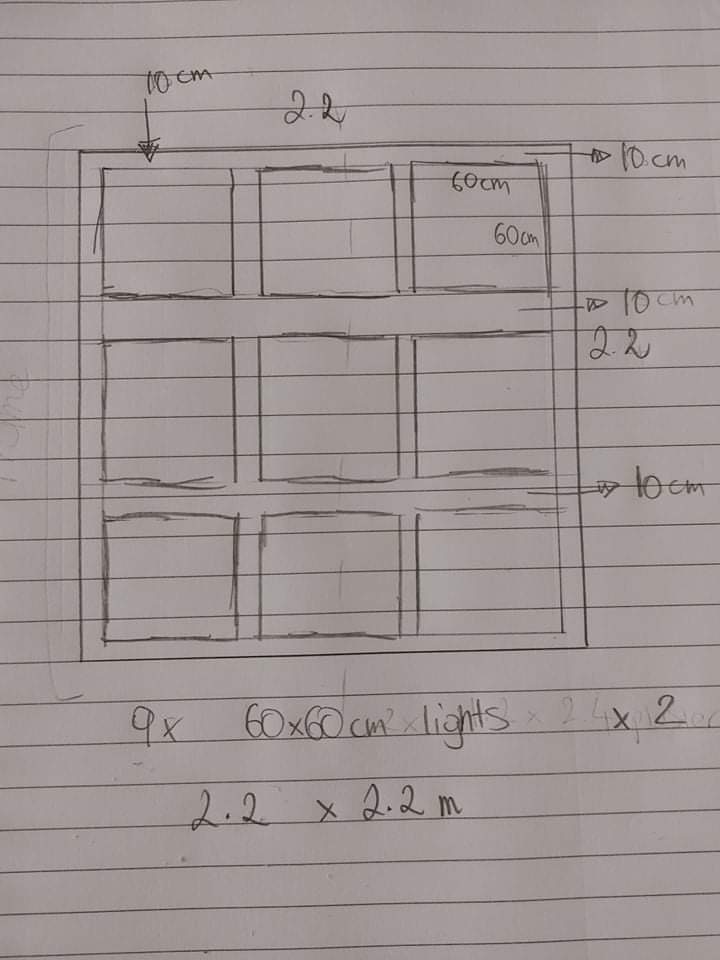 10 cm
2.2
10 cm
60cm
60cm
10 cm
2.2
10 cm
9x 60x60cm² x lights x 2.4 x 2
2.2 x 2.2 m